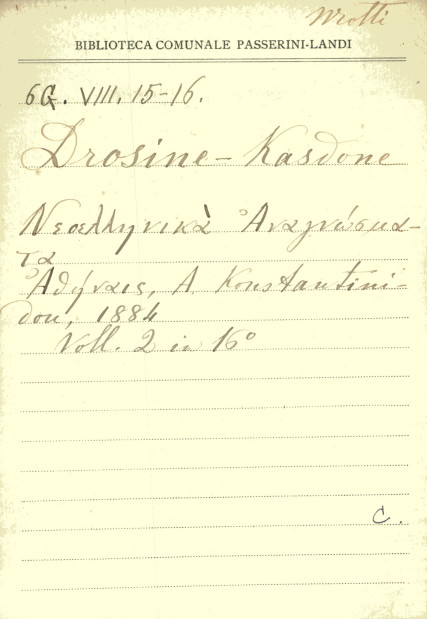 BIBLIOTECA COMUNALE PASSERINI-LANDI
6G. VIII. 15-16.
Drosine - Kasdone
Νεοελληνικὰ Ἀναγνώσμα-
τα
Ἀθήναις, A Konstantini-
dou, 1884
Voll. 2 in 16°
C.